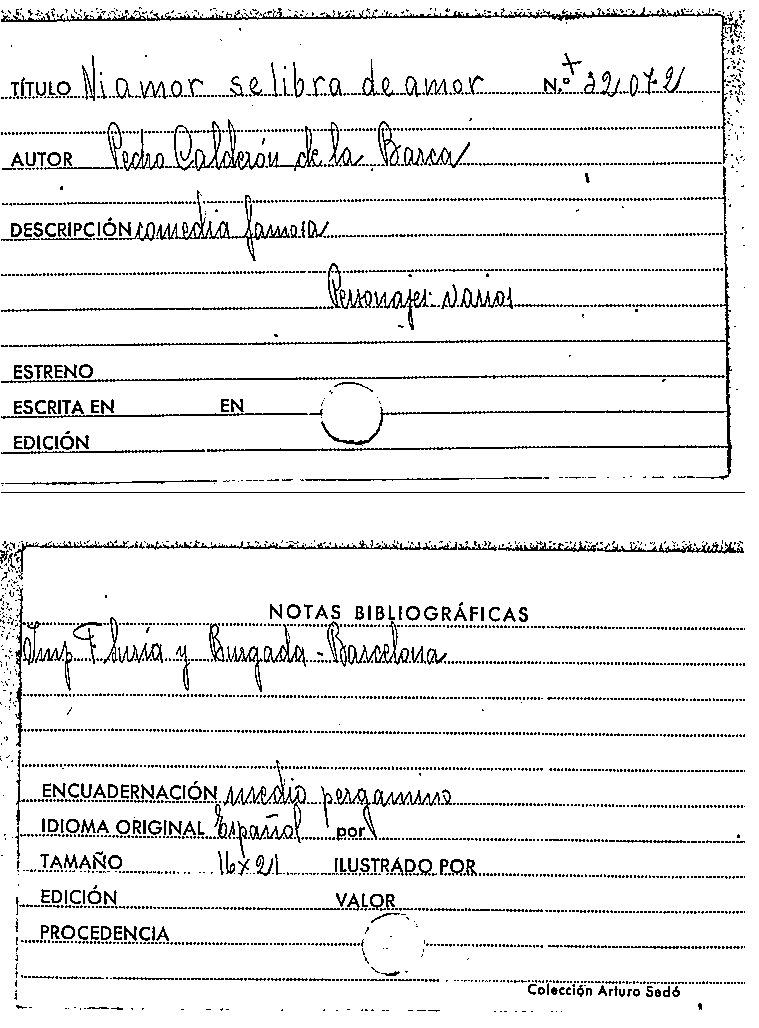 TÍTULO Ni amor se libra de amor N.º 32072
AUTOR Pedro Calderón de la Barca
DESCRIPCIÓN comedia famosa
Personajes: varios
ESTRENO
ESCRITA EN EN
EDICIÓN
NOTAS BIBLIOGRÁFICAS
Imp F. Suria y Burgada - Barcelona
ENCUADERNACIÓN medio pergamino
IDIOMA ORIGINAL Español por
TAMAÑO 16x21 ILUSTRADO POR
EDICIÓN VALOR
PROCEDENCIA
Colección Arturo Sedó